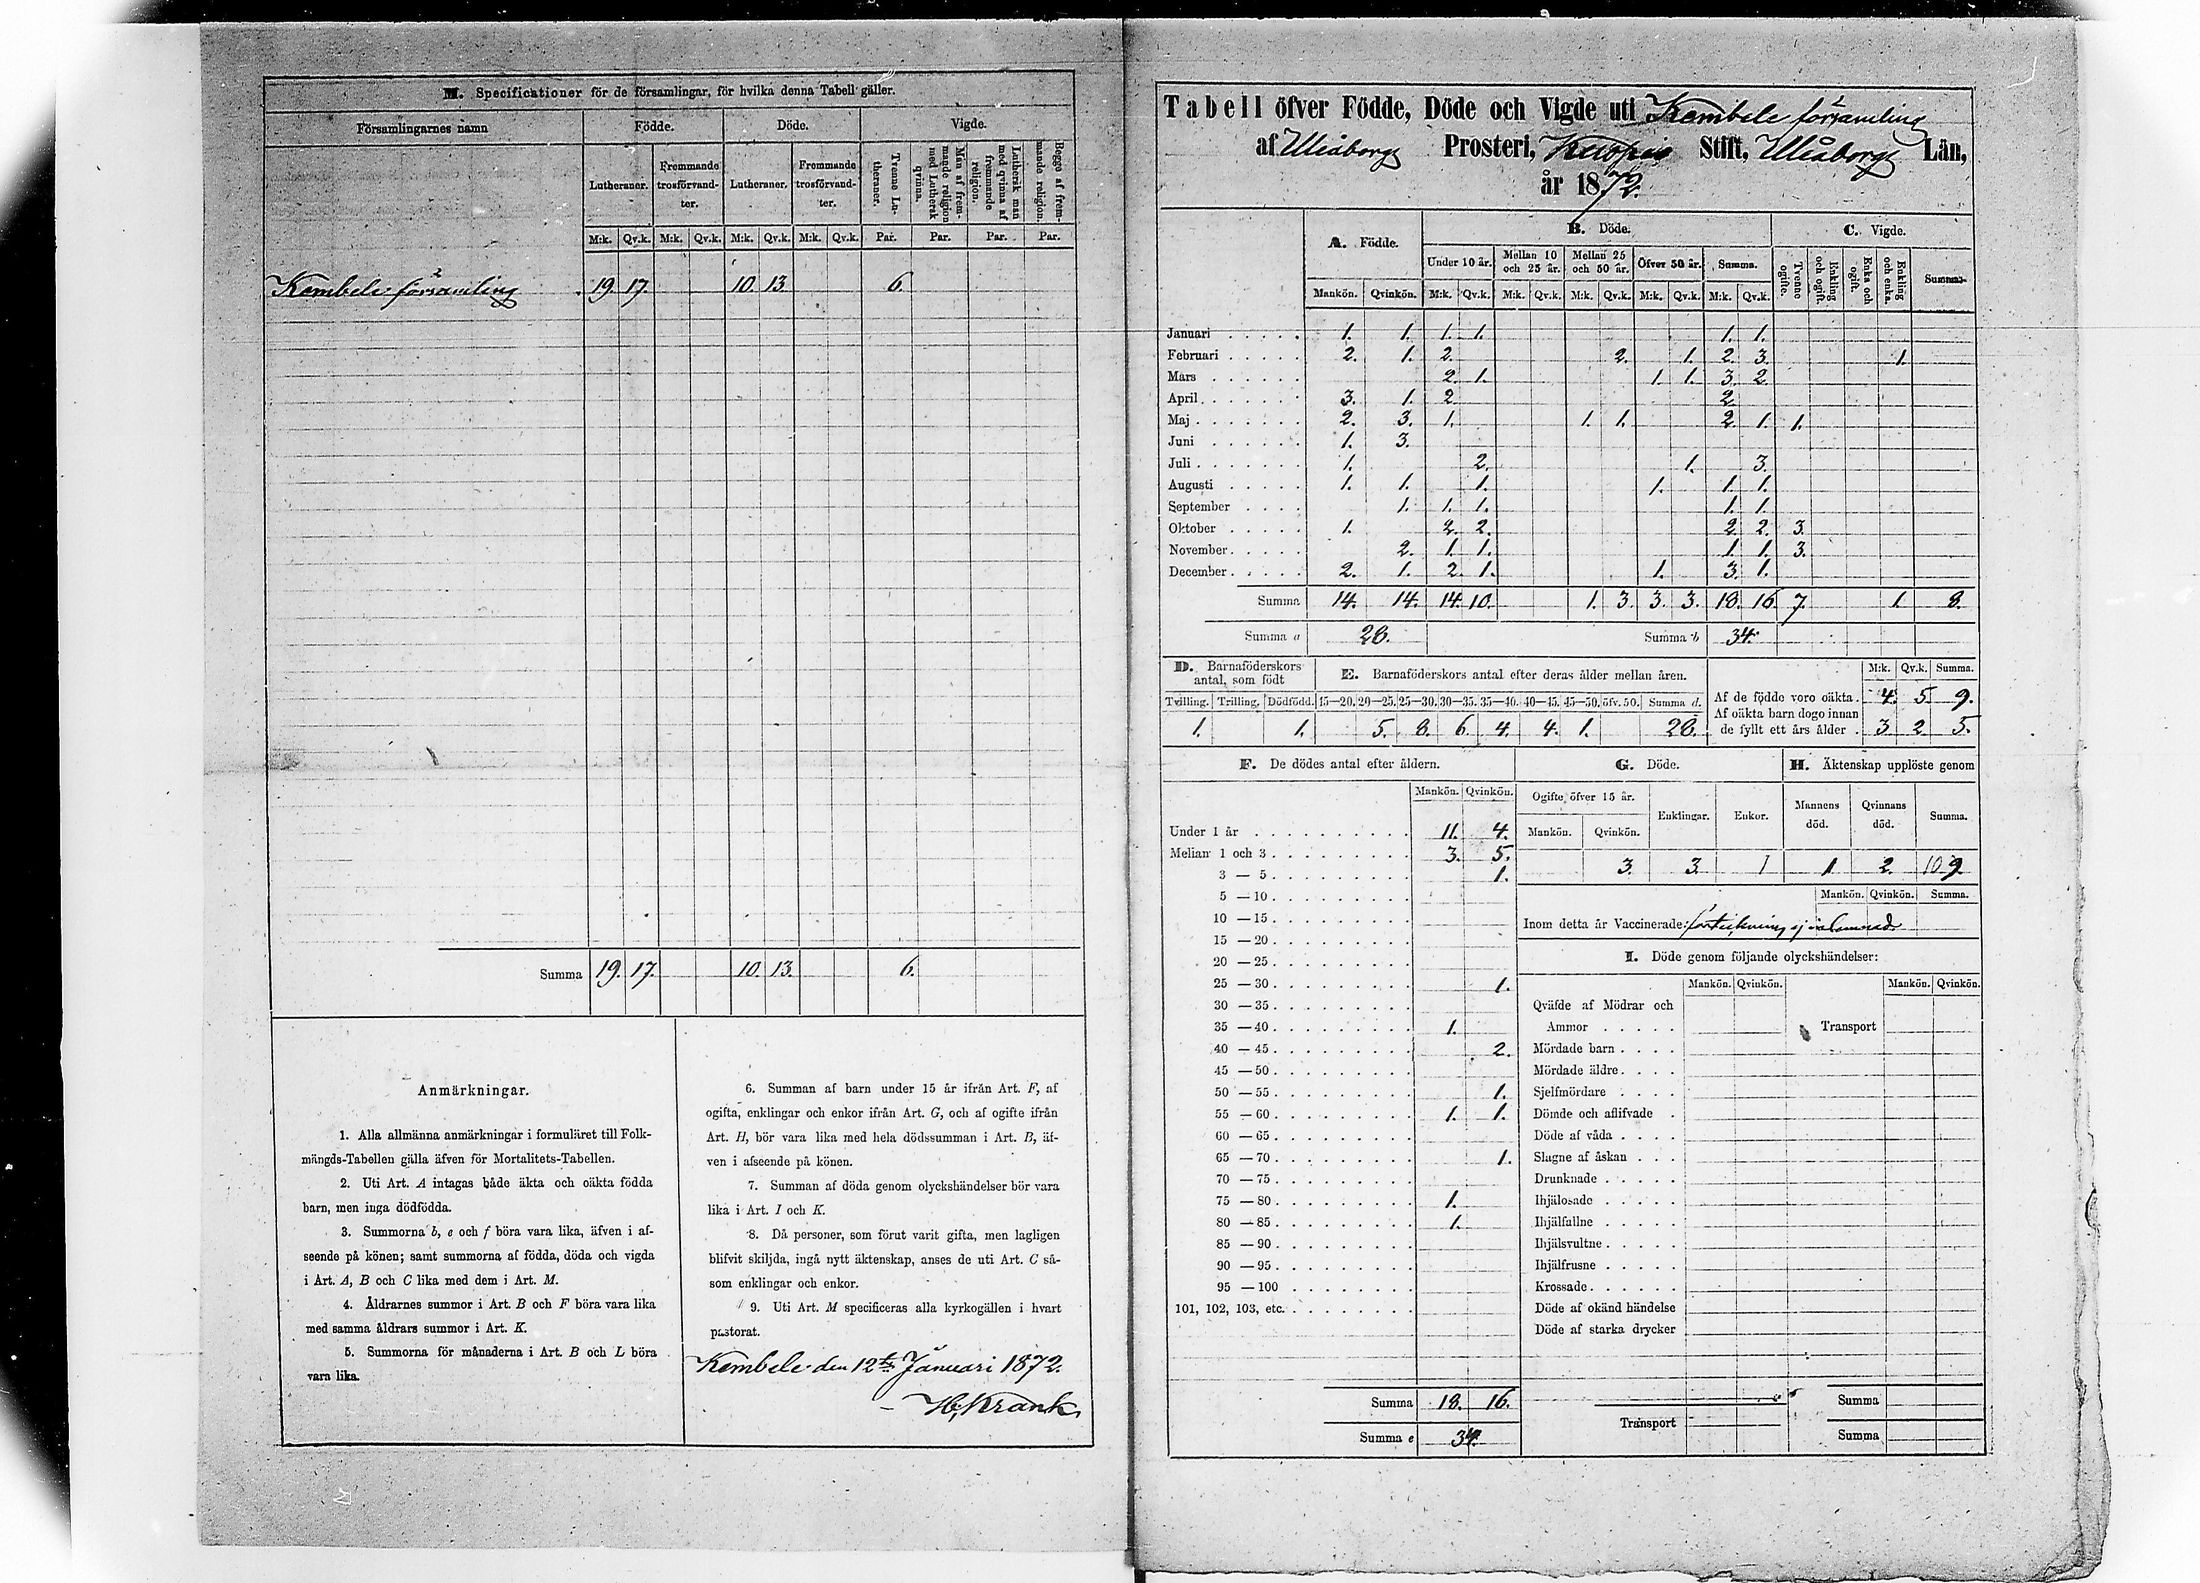 M. Specificationer för de församlingar, för hvilka denna Tabell gäller.
Församlingarnes namn Födde. Döde. Vigde.
Lutheraner. Fremmande trosförvandter. Lutheraner. Fremmande trosförvandter. Tvenne Lutheraner. Man af fremmande religion med Luthersk qvinna. Luthersk man med qvinna af fremmande religion. Begge af fremmande religion.
M:k. Qv.k. M:k. Qv.k. M:k. Qv.k. M:k. Qv.k. Par. Par. Par. Par.
Kembele församling 19. 17. 10. 13. 6.
Summa 19. 17. 10. 13. 6.
Anmärkningar.
1. Alla allmänna anmärkningar i formuläret till Folk-
mängds-Tabellen gälla äfven för Mortalitets-Tabellen.
2. Uti Art. A intagas både äkta och oäkta födda
barn, men inga dödfödda.
3. Summorna b, e och f böra vara lika, äfven i af-
seende på könen; samt summorna af födda, döda och vigda
i Art. A, B och C lika med dem i Art. M.
4. Åldrarnes summor i Art. B och F böra vara lika
med samma åldrars summor i Art. K.
5. Summorna för månaderna i Art. B och L böra
vara lika.
6. Summan af barn under 15 år ifrån Art. F, af
ogifta, enklingar och enkor ifrån Art. G, och af ogifte ifrån
Art. H, bör vara lika med hela dödssumman i Art. B, äf-
ven i afseende på könen.
7. Summan af döda genom olyckshändelser bör vara
lika i Art. I och K.
8. Då personer, som förut varit gifta, men lagligen
blifvit skiljda, ingå nytt äktenskap, anses de uti Art. C så-
som enklingar och enkor.
9. Uti Art. M specificeras alla kyrkogällen i hvart
pastorat.
Kembele den 12te Januari 1872.
H. Krank
Tabell öfver Födde, Döde och Vigde uti Kembele församling
af Uleåborgs Prosteri, Kuopio Stift, Uleåborgs Län,
år 1872.
A. Födde. B. Döde. C. Vigde.
Under 10 år. Mellan 10 och 25 år. Mellan 25 och 50 år. Öfver 50 år. Summa. Tvenne ogifte. Enkling och ogift. Enka och ogift. Enkling och enka. Summa.
Mankön. Qvinkön. M:k. Qv.k. M:k. Qv.k. M:k. Qv.k. M:k. Qv.k. M:k. Qv.k.
Januari 1. 1. 1. 1. 1. 1.
Februari 2. 1. 2. 2. 1. 2. 3. 1.
Mars 2. 1. 1. 1. 3. 2.
April 3. 1. 2. 2
Maj 2. 3. 1. 1. 1. 2. 1. 1.
Juni 1. 3.
Juli 1. 2. 1. 3.
Augusti 1. 1. 1. 1. 1. 1.
September 1. 1. 1. 1. 1.
Oktober 1. 2. 2. 2. 2. 3.
November 2. 1. 1. 1. 1. 3.
December 2. 1. 2. 1. 1. 3. 1.
Summa 14. 14. 14. 10. 1. 3. 3. 3. 18. 16 7. 1. 8.
Summa a 28. Summa b 34.
D. Barnaföderskors antal, som födt E. Barnaföderskors antal efter deras ålder mellan åren. M:k. Qv.k. Summa.
Tvilling. Trilling. Dödfödd. 15—20. 20—25. 25—30. 30—35. 35—40. 40—45. 45—50. öfv. 50. Summa d.
1. 1. 5. 8. 6. 4. 4. 1. 28.
Af de födde voro oäkta. 4. 5. 9.
Af oäkta barn dogo innan de fyllt ett års ålder. 3. 2. 5.
F. De dödes antal efter åldern.
Mankön. Qvinkön.
Under 1 år 11. 4.
Mellan 1 och 3 3. 5.
3 — 5 1.
5 — 10
10 — 15
15 — 20
20 — 25
25 — 30 1.
30 — 35
35 — 40 1.
40 — 45 2.
45 — 50
50 — 55 1.
55 — 60 1. 1.
60 — 65
65 — 70 1.
70 — 75
75 — 80 1.
80 — 85 1.
85 — 90
90 — 95
95 — 100
101, 102, 103, etc.
Summa 18. 16.
Summa e 34.
G. Döde. H. Äktenskap upplöste genom
Ogifte öfver 15 år. Enklingar. Enkor. Mannens död. Qvinnans död. Summa.
Mankön. Qvinkön.
3. 3. 1 1. 2. 10 9.
Mankön. Qvinkön. Summa.
Inom detta år Vaccinerade: förteckning ej inlemnad
I. Döde genom följande olyckshändelser:
Mankön. Qvinkön. Mankön. Qvinkön.
Qväfde af Mödrar och
Ammor Transport
Mördade barn
Mördade äldre
Sjelfmördare
Dömde och aflifvade
Döde af våda
Slagne af åskan
Drunknade
Ihjälosade
Ihjälfallne
Ihjälsvultne
Ihjälfrusne
Krossade
Döde af okänd händelse
Döde af starka drycker
Summa
Transport Summa